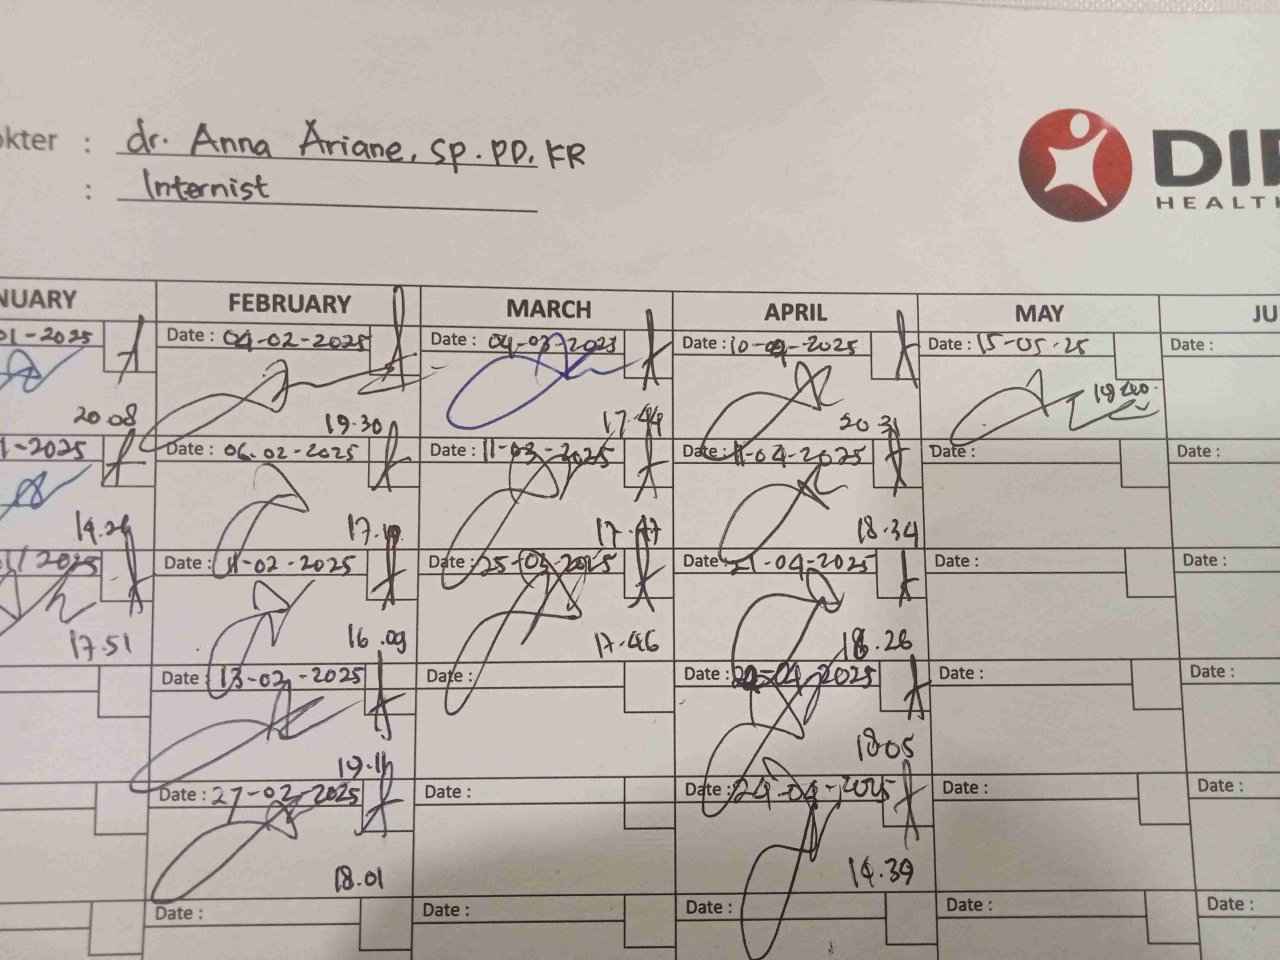 okter : dr. Anna Ariane, SP.PD, KR
: Internist
DI
HEALT
NUARY FEBRUARY MARCH APRIL MAY JU
01-2025 Date : 04-02-2025 Date : 04-03-2025 Date : 10-04-2025 Date : 15-05-25 Date :
20.08 19.30 17.44 20.31 19.40
1-2025 Date : 06.02-2025 Date : 11-03-2025 Date : 11-04-2025 Date : Date :
14.26 17.19 17.47 18.34
/2025 Date : 11-02-2025 Date : 25-03-2025 Date : 21-04-2025 Date : Date :
17.51 16.09 17.46 18.26
Date : 13-02-2025 Date : Date : -04-2025 Date : Date :
19.11 18.05
Date : 27-02-2025 Date : Date : 24-04-2025 Date : Date :
18.01 14.39
Date : Date : Date : Date : Date :